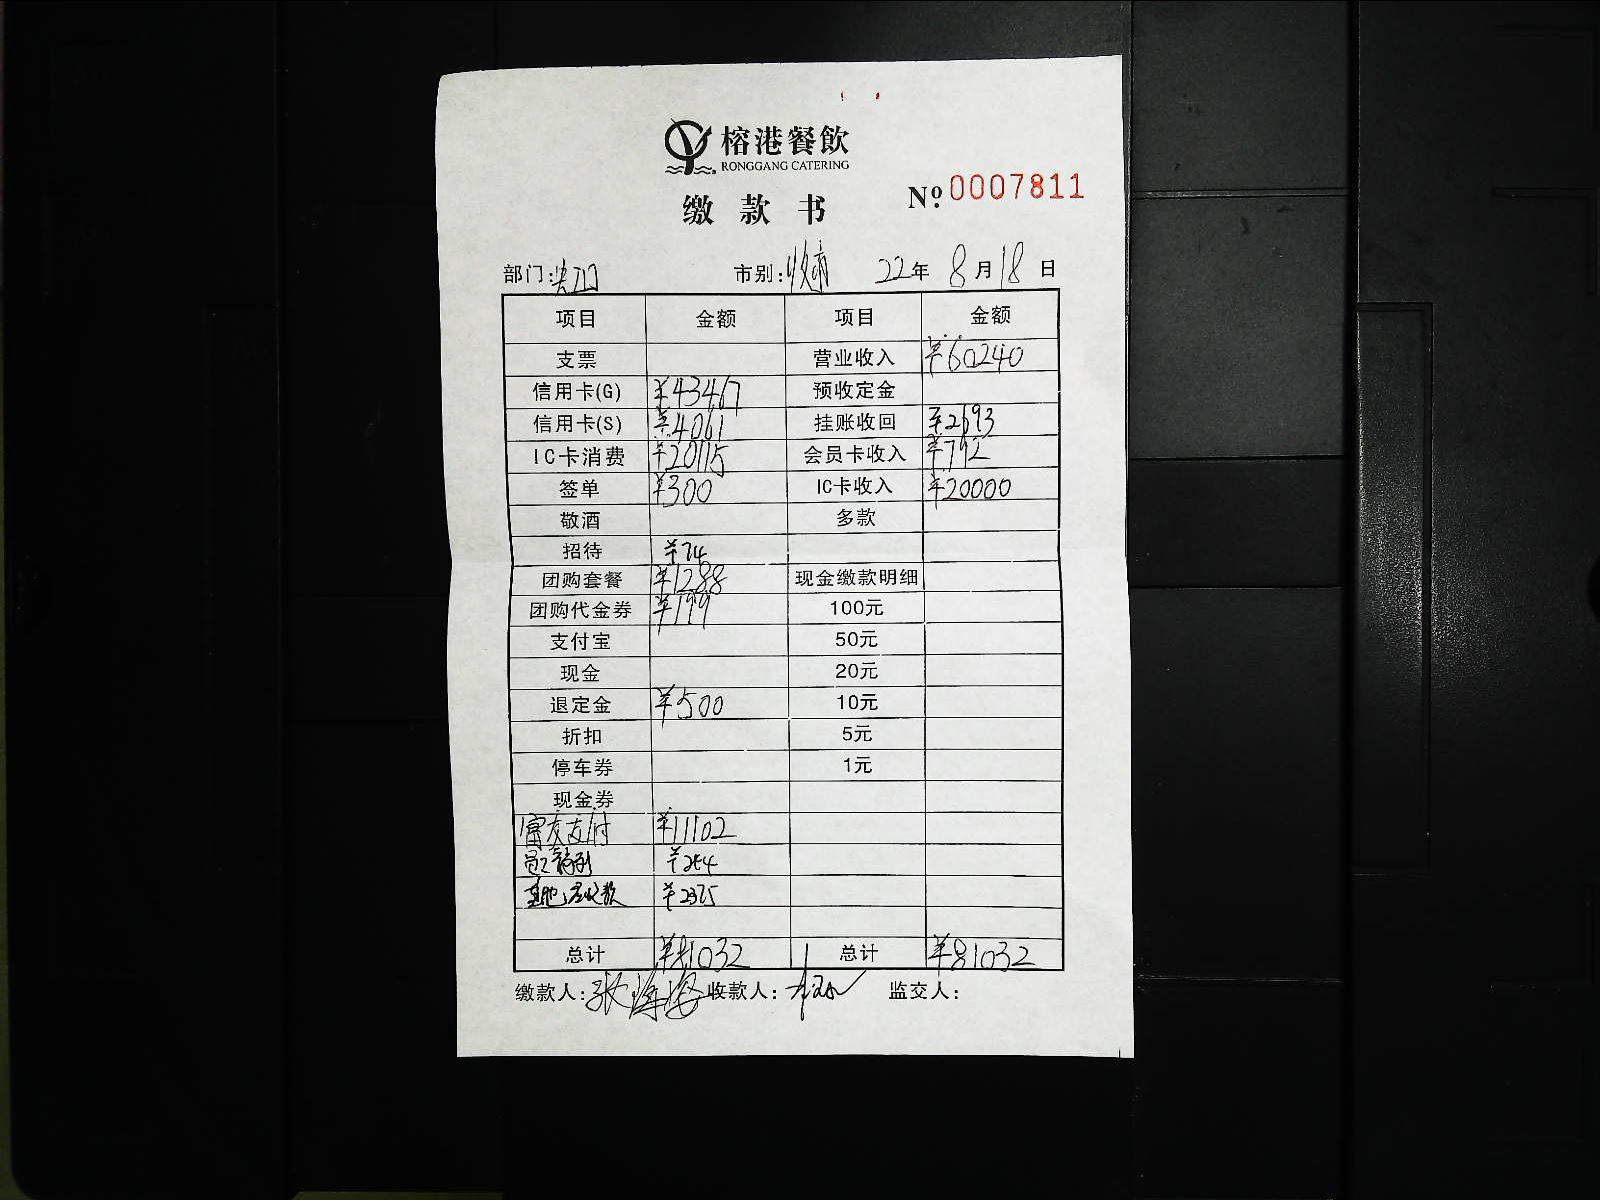 榕港餐飲
RONGGANG CATERING
缴款书
Nº 0007811
部门: 市别: 22年8月18日
项目 金额 项目 金额
支票 营业收入 ¥60240
信用卡(G) ¥43467 预收定金
信用卡(S) ¥4061 挂账收回 ¥2693
IC卡消费 ¥20115 会员卡收入 ¥792
签单 ¥300 IC卡收入 ¥20000
敬酒 多款
招待 ¥74
团购套餐 ¥1288 现金缴款明细
团购代金券 ¥199 100元
支付宝 50元
现金 20元
退定金 ¥500 10元
折扣 5元
停车券 1元
现金券
富友支付 ¥11102
员工福利 ¥254
其他应收款 ¥2365
总计 ¥81032 总计 ¥81032
缴款人: 收款人: 监交人: